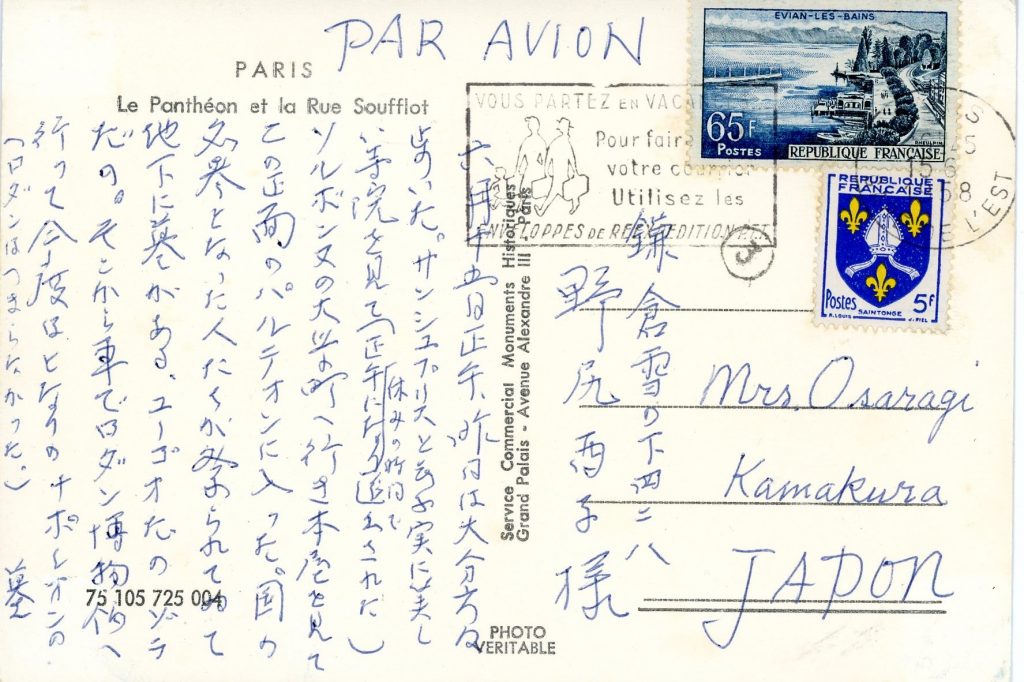 PAR AVION
PARIS
Le Panthéon et la Rue Soufflot
VOUS PARTEZ EN VACA
Pour fair
votre courrier
Utilisez les
ENVELOPPES DE REEXPEDITION
EVIAN-LES-BAINS
65F
POSTES
REPUBLIQUE FRANÇAISE
REPUBLIQUE FRANÇAISE
Postes
5F
SAINTONGE
R. LOUIS
15-6
58
L'EST
3
六月十五日正午、昨日は大分方々
歩いた。サンシュプリスと云ふ実に美し
い寺院を見て(正午になり追出された)
休みの時間で
ソルボンヌの大学の町へ行き本屋を見て
この面のパルテオンに入った。国の
名誉となった人たちが祭られてゐて
地下に墓がある、ユーゴオだのゾラ
だの。そこから車でロダン博物館へ
行って今度はとなりのナポレオンの
墓
(ロダンはつまらなかった。)
鎌倉雪の下四二八
野尻酉子様
Mrs. Osaragi
Kamakura
JAPON
Service Commercial Monuments Historiques
Grand Palais - Avenue Alexandre III - Paris
75 105 725 004
PHOTO
VERITABLE